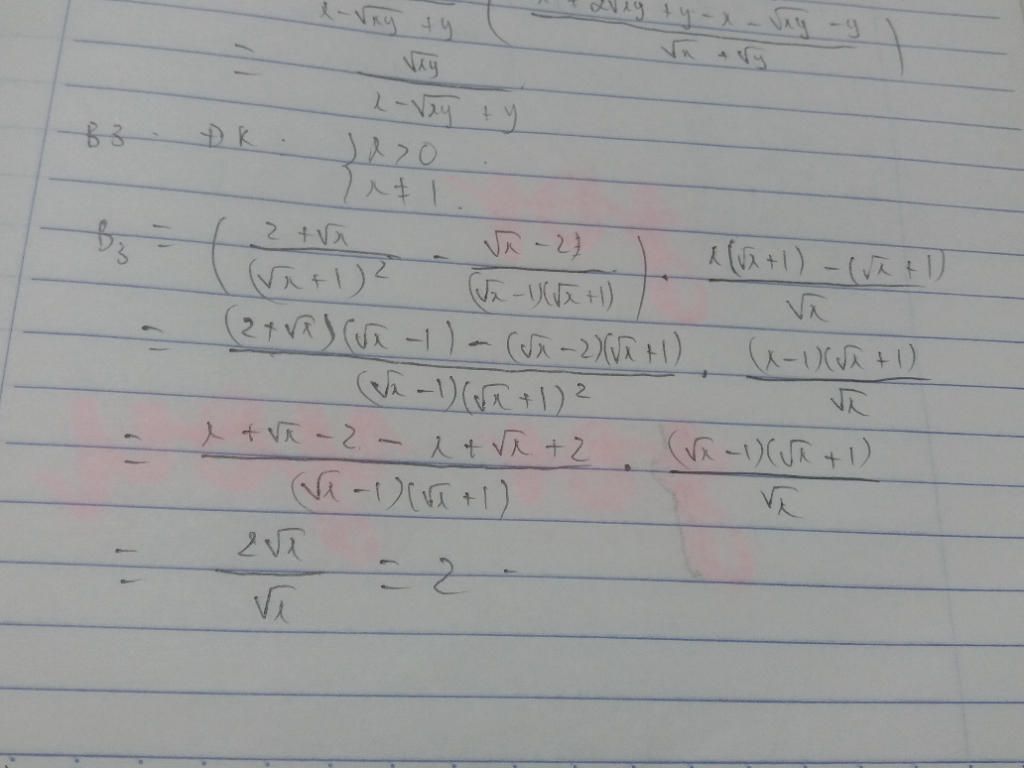 x - √xy + y ( x + 2√xy + y - x - √xy - y / √x + √y )
= √xy / x - √xy + y
B3. ĐK. } x > 0
} x ≠ 1.
B₃ = ( 2 + √x / (√x + 1)² - √x - 2 / (√x - 1)(√x + 1) ) . x(√x + 1) - (√x + 1) / √x
= (2 + √x)(√x - 1) - (√x - 2)(√x + 1) / (√x - 1)(√x + 1)² . (x - 1)(√x + 1) / √x
= x + √x - 2 - x + √x + 2 / (√x - 1)(√x + 1) . (√x - 1)(√x + 1) / √x
= 2√x / √x = 2.